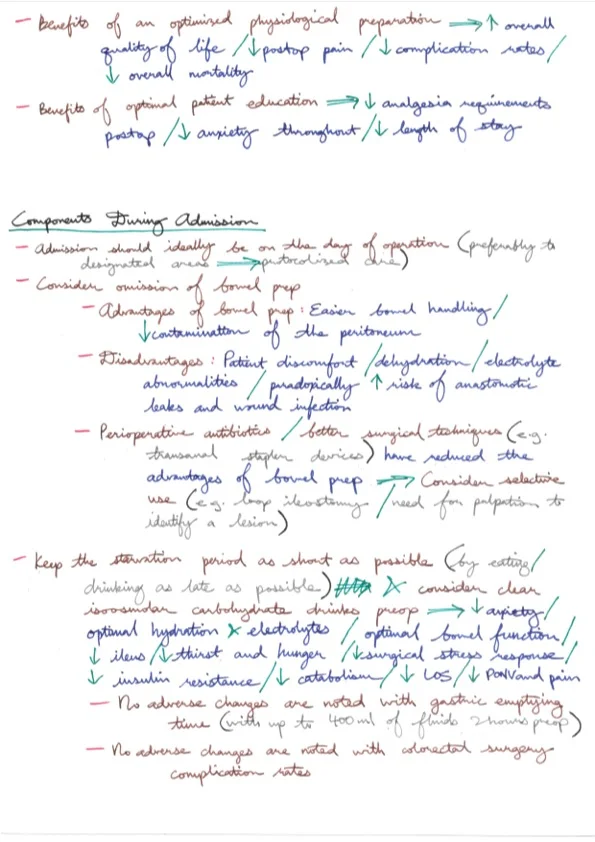 - Benefits of an optimized physiological preparation → ↑ overall
quality of life / ↓ postop pain / ↓ complication rates /
↓ overall mortality
- Benefits of optimal patient education → ↓ analgesia requirements
postop / ↓ anxiety throughout / ↓ length of stay
Components During Admission
- Admission should ideally be on the day of operation (preferably to
designated areas → protocolized care)
- Consider omission of bowel prep
- Advantages of bowel prep: Easier bowel handling /
↓ contamination of the peritoneum
- Disadvantages: Patient discomfort / dehydration / electrolyte
abnormalities / paradoxically ↑ risk of anastomotic
leaks and wound infection
- Perioperative antibiotics / better surgical techniques (e.g.
transanal stapler devices) have reduced the
advantages of bowel prep → Consider selective
use (e.g. loop ileostomy / need for palpation to
identify a lesion)
- Keep the starvation period as short as possible (by eating /
drinking as late as possible) & consider clear
isoosmolar carbohydrate drinks preop → ↓ anxiety /
optimal hydration & electrolytes / optimal bowel function /
↓ ileus / ↓ thirst and hunger / ↓ surgical stress response /
↓ insulin resistance / ↓ catabolism / ↓ LOS / ↓ PONV and pain
- No adverse changes are noted with gastric emptying
time (with up to 400ml of fluids 2 hours preop)
- No adverse changes are noted with colorectal surgery
complication rates